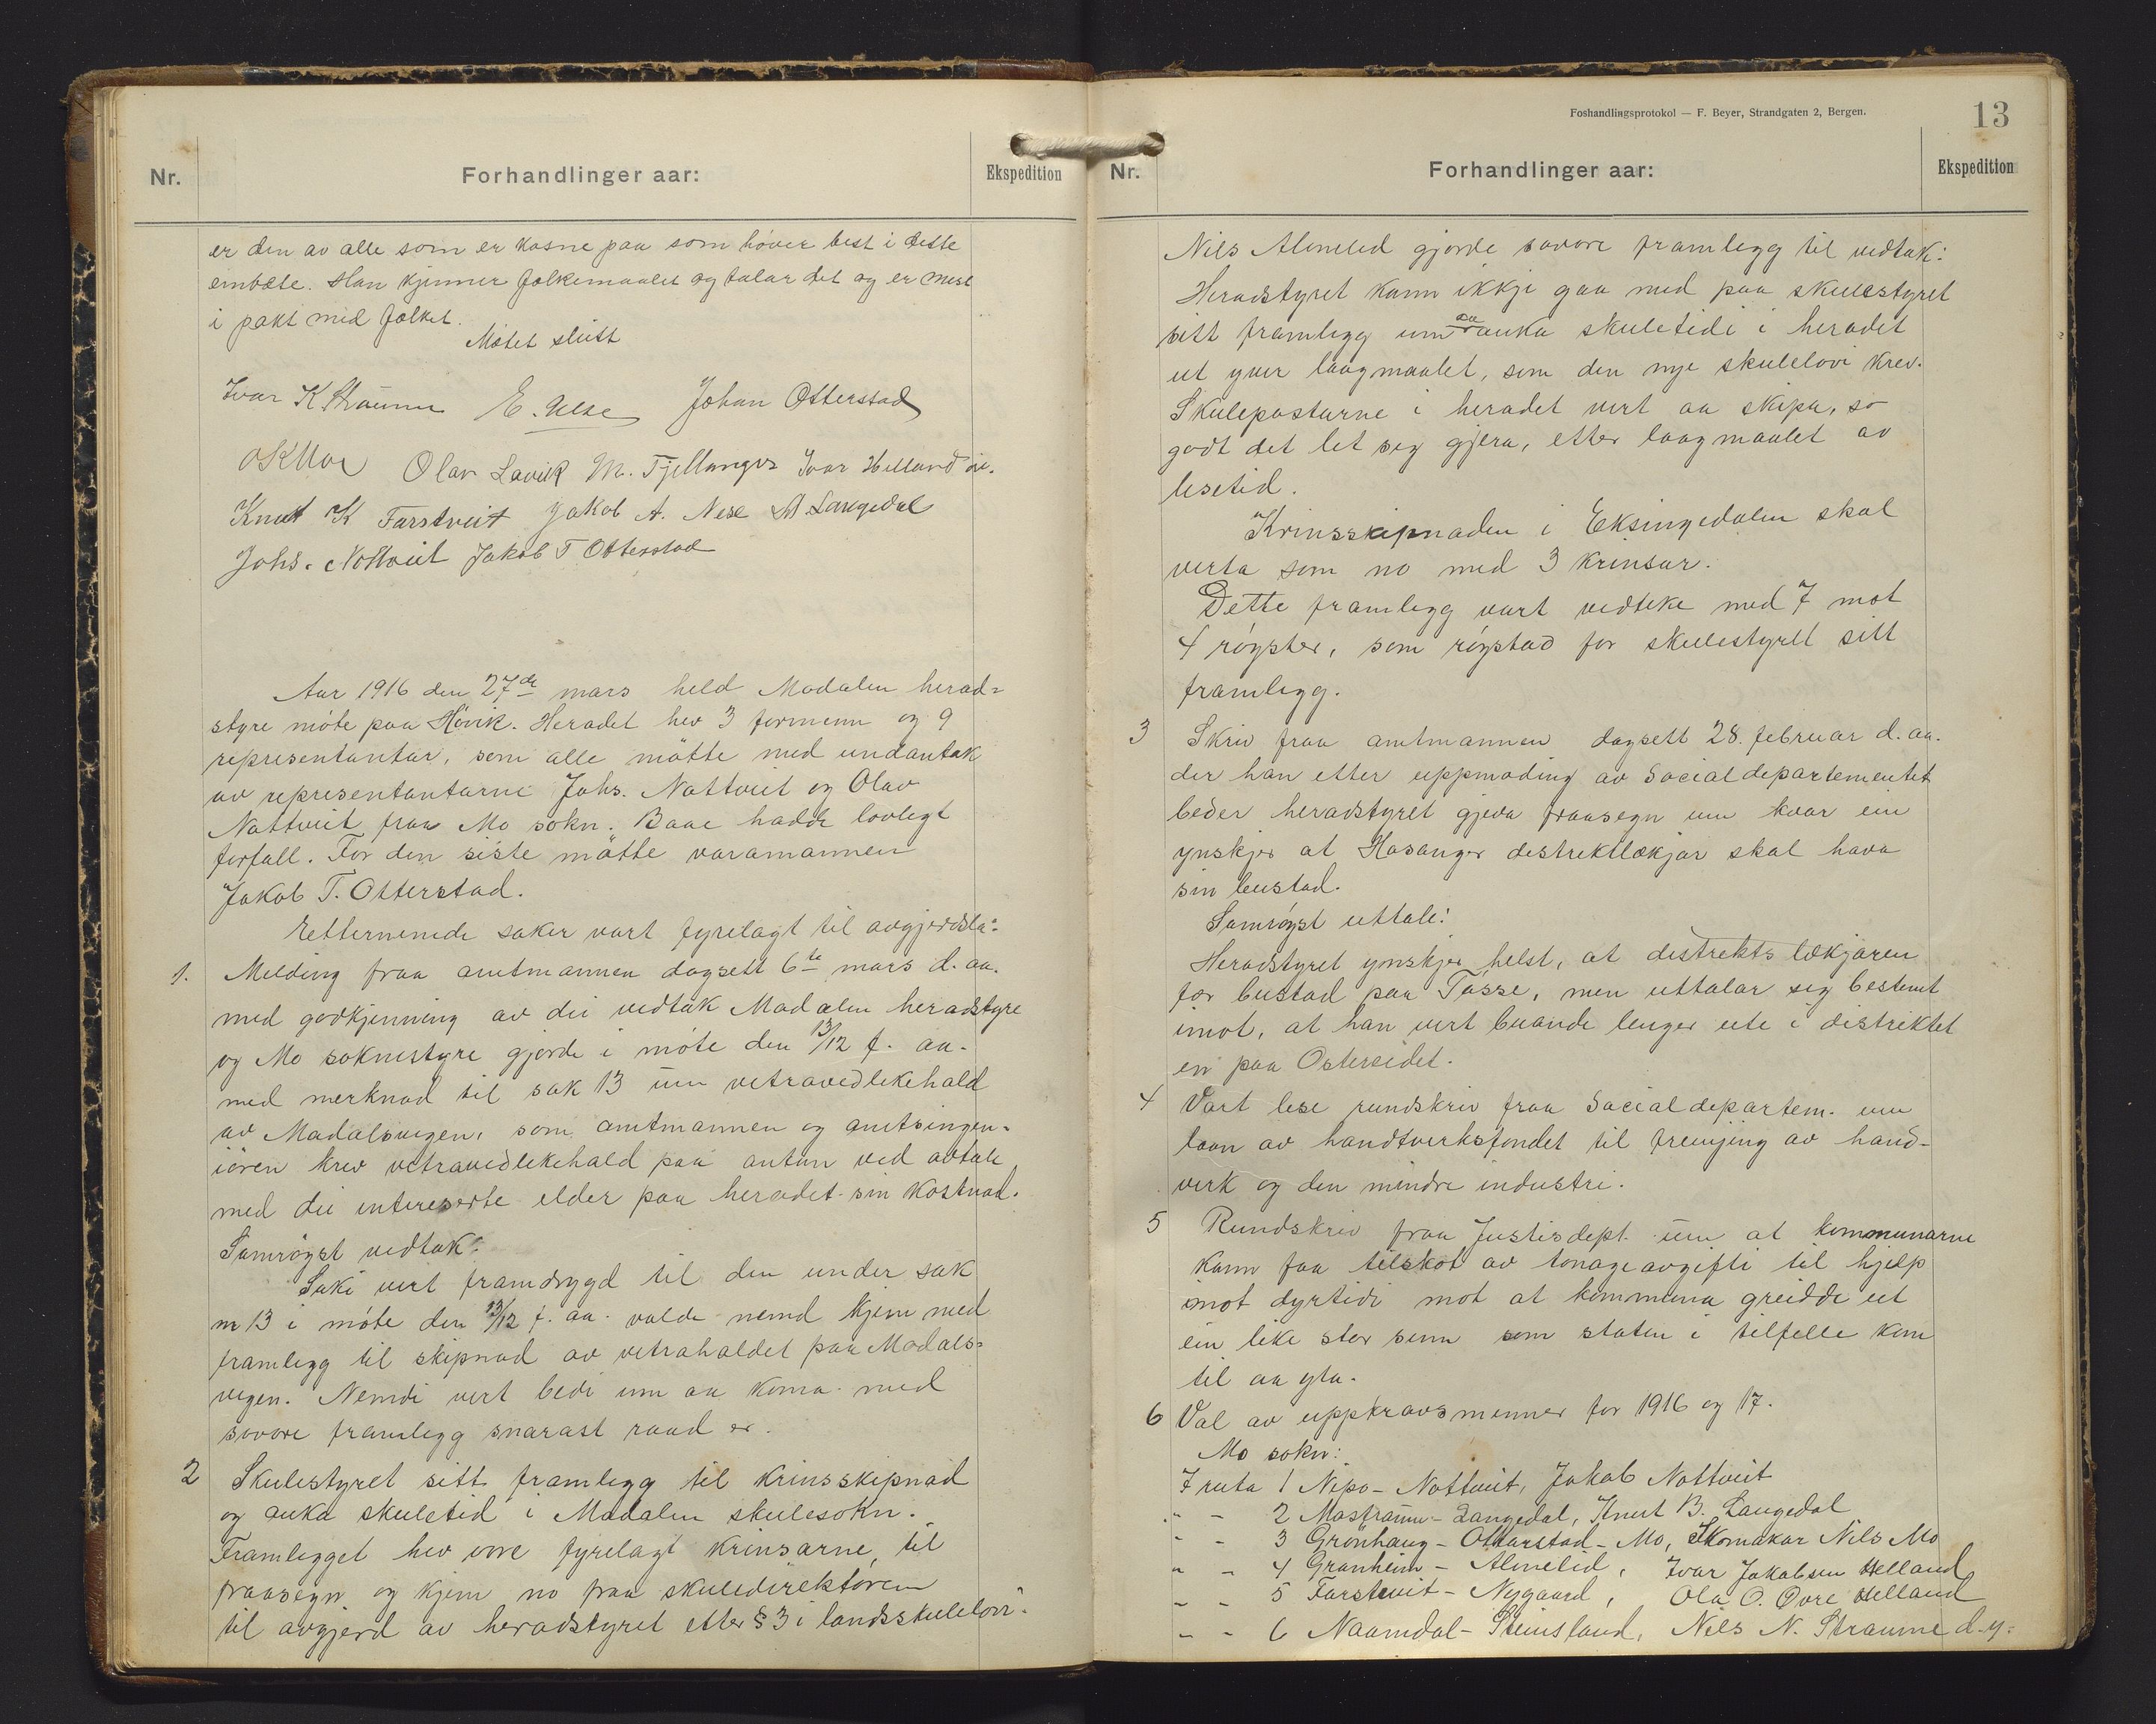 Nr.
Forhandlinger aar:
Ekspedition
er den av alle som er kosne paa som höver best i dette
embæte. Han kjenner folkemaalet og talar det og er mest
i pakt med folket.
Mötet slutt
Ivar K Straume E. Nese Johan Otterstad
O K Moe Olav Lavik M. Fjellanger Ivar Helland
Knut K Farstveit Jakob A. Nese A. Langedal
Johs. Nottveit Jakob T Otterstad
Aar 1916 den 27de mars held Modalen herad-
styre möte paa Hövik. Heradet hev 3 formenn og 9
representantar, som alle mötte med undantak
av representantarne Johs. Nottveit og Olav
Nottveit fraa Mo sokn. Baae hadde lovlegt
forfall. For den siste mötte varamannen
Jakob T. Otterstad.
Etternemnde saker vart fyrelagt til avgjerdsla:
1. Melding fraa amtmannen dagsett 6te mars d. aa.
med godkjenning av dei vedtak Modalen heradstyre
og Mo soknestyre gjorde i möte den 13/12 f. aa.
med merknad til sak 13 um vetravedlikehald
av Modalsvegen, som amtmannen og amtsingen-
iören krev vetravedlikehald paa anten ved avtale
med dei intereserte elder paa heradet sin kostnad.
Samröyst vedtak:
Saki vert framdrygd til den under sak
nr 13 i möte den 13/12 f. aa. valde nemd kjem med
framlegg til skipnad av vetrahaldet paa Modals-
vegen. Nemdi vert bedi um aa koma med
sovore framlegg snarast raad er.
2 Skulestyret sitt framlegg til krinsskipnad
og auka skuletid i Modalen skulesokn.
Framlegget hev vore fyrelagt krinsarne til
fraasegn og kjem no fraa skuledirektören
til avgjerd av heradstyret etter § 3 i landsskulelovi.
Foshandlingsprotokol — F. Beyer, Strandgaten 2, Bergen.
13
Nr.
Forhandlinger aar:
Ekspedition
Nils Almelid gjorde sovore framlegg til vedtak:
Heradstyret kann ikkje gaa med paa skulestyret
sitt framlegg um aa auka skuletidi i heradet
ut yver laagmaalet, som den nye skulelovi krev.
Skulepostarne i heradet vert aa skipa, so
godt det let seg gjera, etter laagmaalet av
lesetid.
Krinsskipnaden i Eksingedalen skal
verta som no med 3 krinsar.
Dette framlegg vart vedteke med 7 mot
4 röyster, som röystad for skulestyret sitt
framlegg.
3 Skriv fraa amtmannen dagsett 28. februar d. aa.
der han etter uppmoding av Socialdepartementet
beder heradstyret gjeva fraasegn um kvar ein
ynskjer at Hosanger destriktlækjar skal hava
sin bustad.
Samröyst uttale:
Heradstyret ynskjer helst, at distriktslækjaren
fær bustad paa Tösse, men uttalar seg bestemt
imot, at han vert buande lenger ute i distriktet
en paa Ostereidet.
4 Vart lese rundskriv fraa Socialdepartem. um
laan av handtverksfondet til fremjing av hand-
verk og den mindre industri.
5 Rundskriv fraa Justisdept. um at kommunarne
kann faa tilskot av tonageavgifti til hjelp
imot dyrtidi mot at kommuna greidde ut
ein like stor sum som staten i tilfelle kem
til aa yta.
6 Val av uppkravsmenner for 1916 og 17.
Mo sokn:
I ruta 1 Nipo - Nottveit, Jakob Nottveit
" - 2 Mostraum - Langedal, Knut B. Langedal
" - 3 Grönhaug - Otterstad - Mo, Skomakar Nils Mo
" - 4 Granheim - Almelid, Ivar Jakobsen Helland
" - 5 Farstveit - Nygaard, Ola O. Övre Helland
" - 6 Naamdal - Steinsland, Nils N. Straume d. y.